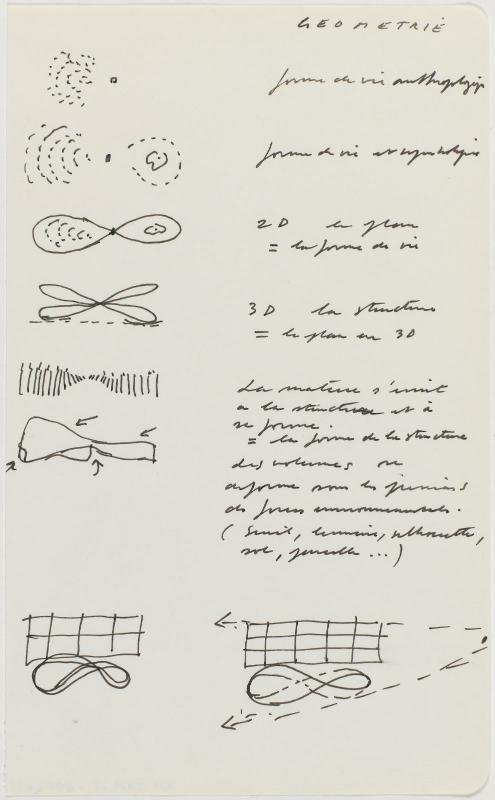 GEOMETRIE
forme de vie anthropologique
forme de vie et symbolique
2D le plan
= la forme de vie
3D la structure
= le plan en 3D
La matiere s'unit
a la structure et à
se forme.
= la forme de la structure
des volumes se
deforme sous les
de forces environnementales.
( Seuil, lumiere, silhouette,
sol, parcelle ...)